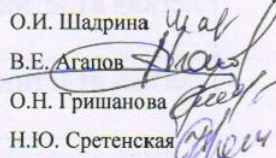 О.И. Шадрина
В.Е. Агапов
О.Н. Гришанова
Н.Ю. Сретенская